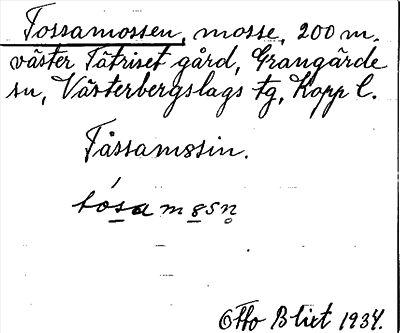 Tossamossen, mosse, 200 m.
väster Tätriset gård, Grangärde
sn, Västerbergslags tg, Kopp l.
Tåssamossin.
tósa m s s n̥
Otto Blixt 1934.